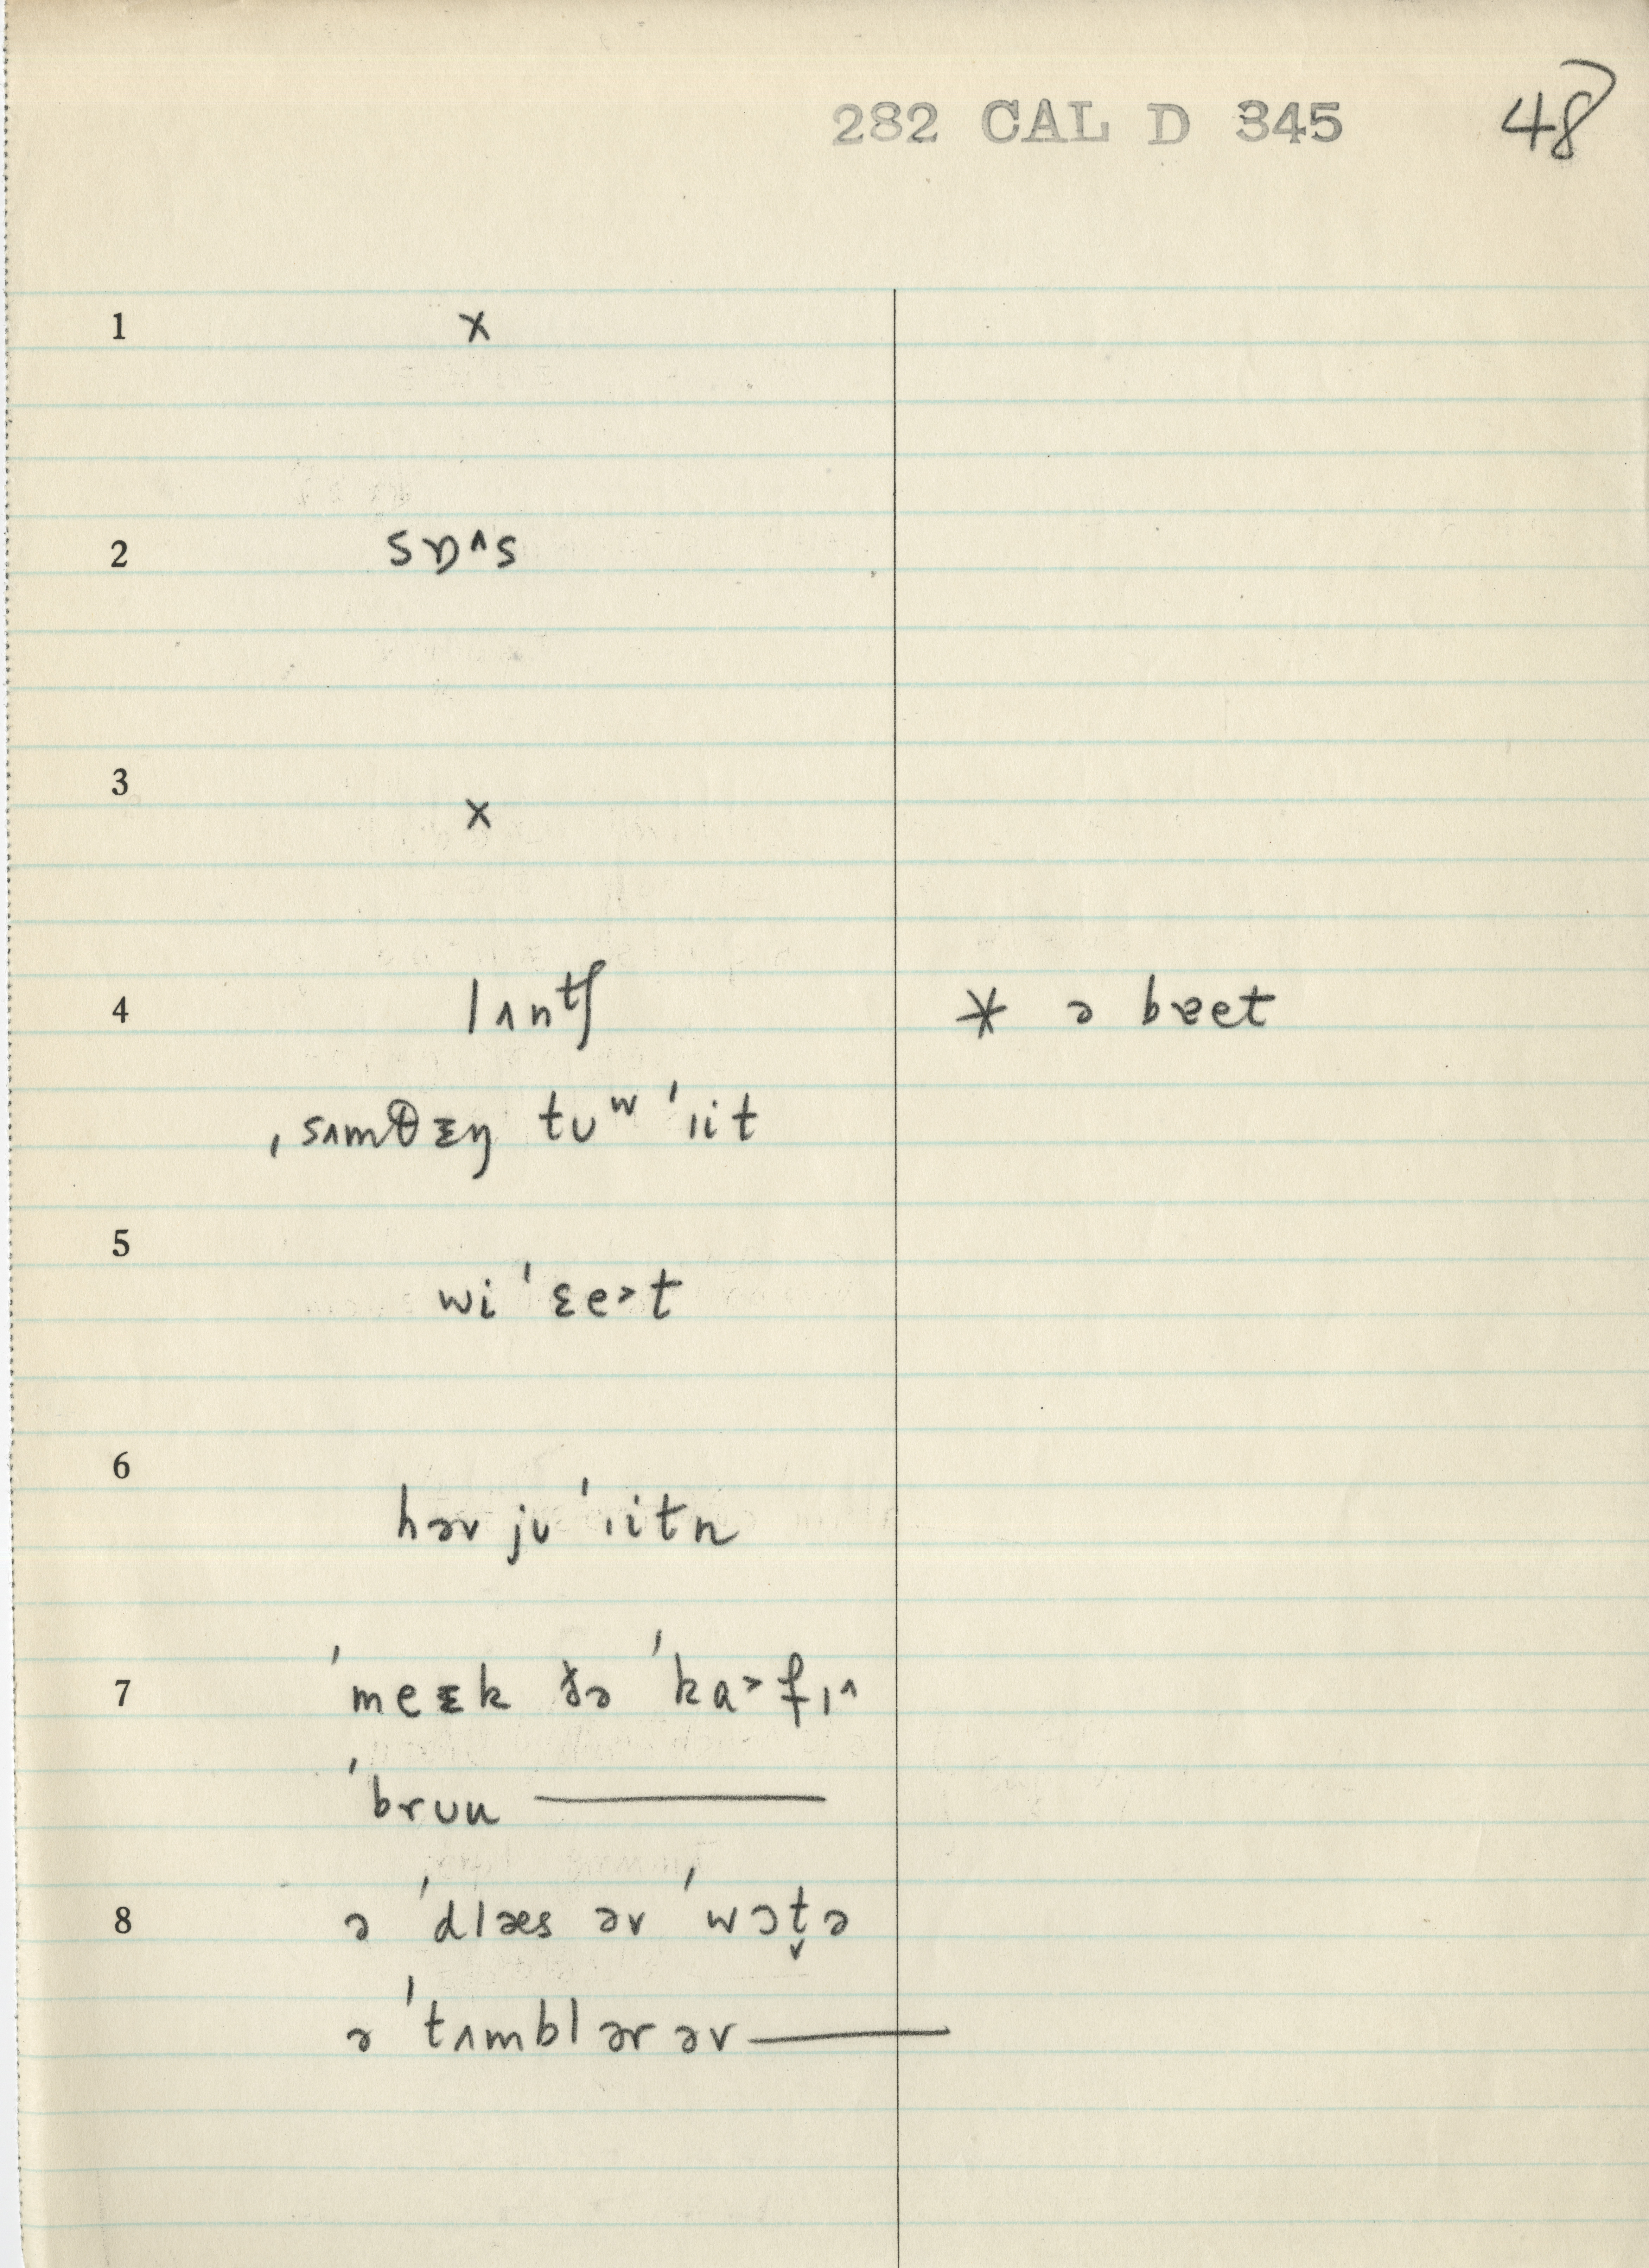 282 CAL D 345 48
1 x
2 sɒ^s
3 x
4 lʌntʃ * ə bɐet
ˌsʌmθɛŋ tʊʷ ˈɪit
5 wi ˈɛe˃t
6 həv jʊ ˈɪitn
7 ˈmeɛk ðə ˈkɑ˃fɪ^
ˈbrʊu ———
8 ə ˈdlæs əv ˈwɔt̬ə
ə ˈtʌmblər əv ———